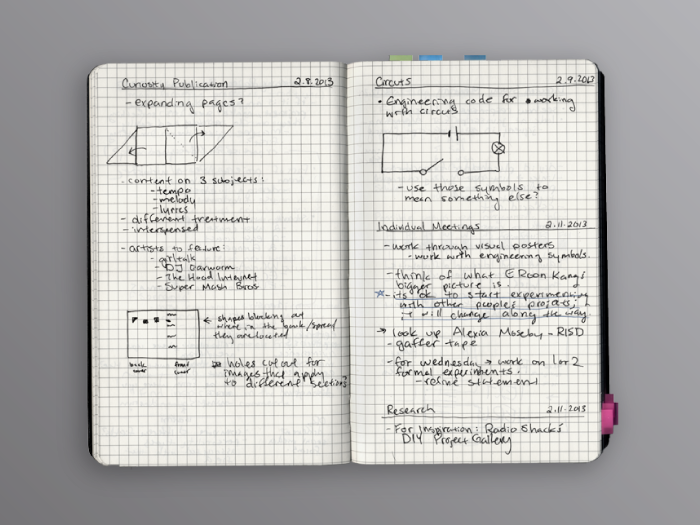 Curiosity Publication 2.8.2013
- expanding pages?
- content on 3 subjects:
- tempo
- melody
- lyrics
- different treatment
- interspersed
- artists to feature:
- girltalk
- DJ Earworm
- The Hood Internet
- Super Mash Bros
← shapes blocking out
where in the book/spread
they are located
back
cover
front
cover
holes cut out for
images that apply
to different sections?
Circuts 2.9.2013
• Engineering code for working
with circuts
- use those symbols to
mean something else?
Individual Meetings 2.11.2013
- work through visual posters
- work with engineering symbols.
- think of what E Roon Kang's
bigger picture is.
☆ - its ok to start experimenting
with other peoples projects,
it will change along the way
→ look up Alexia Moseby - RISD
- gaffer tape
- for wednesday → work on 1 or 2
formal experiments.
- refine statement
Research 2.11.2013
- For Inspiration: Radio Shack's
DIY Project Gallery